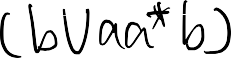 (b∪aa*b)